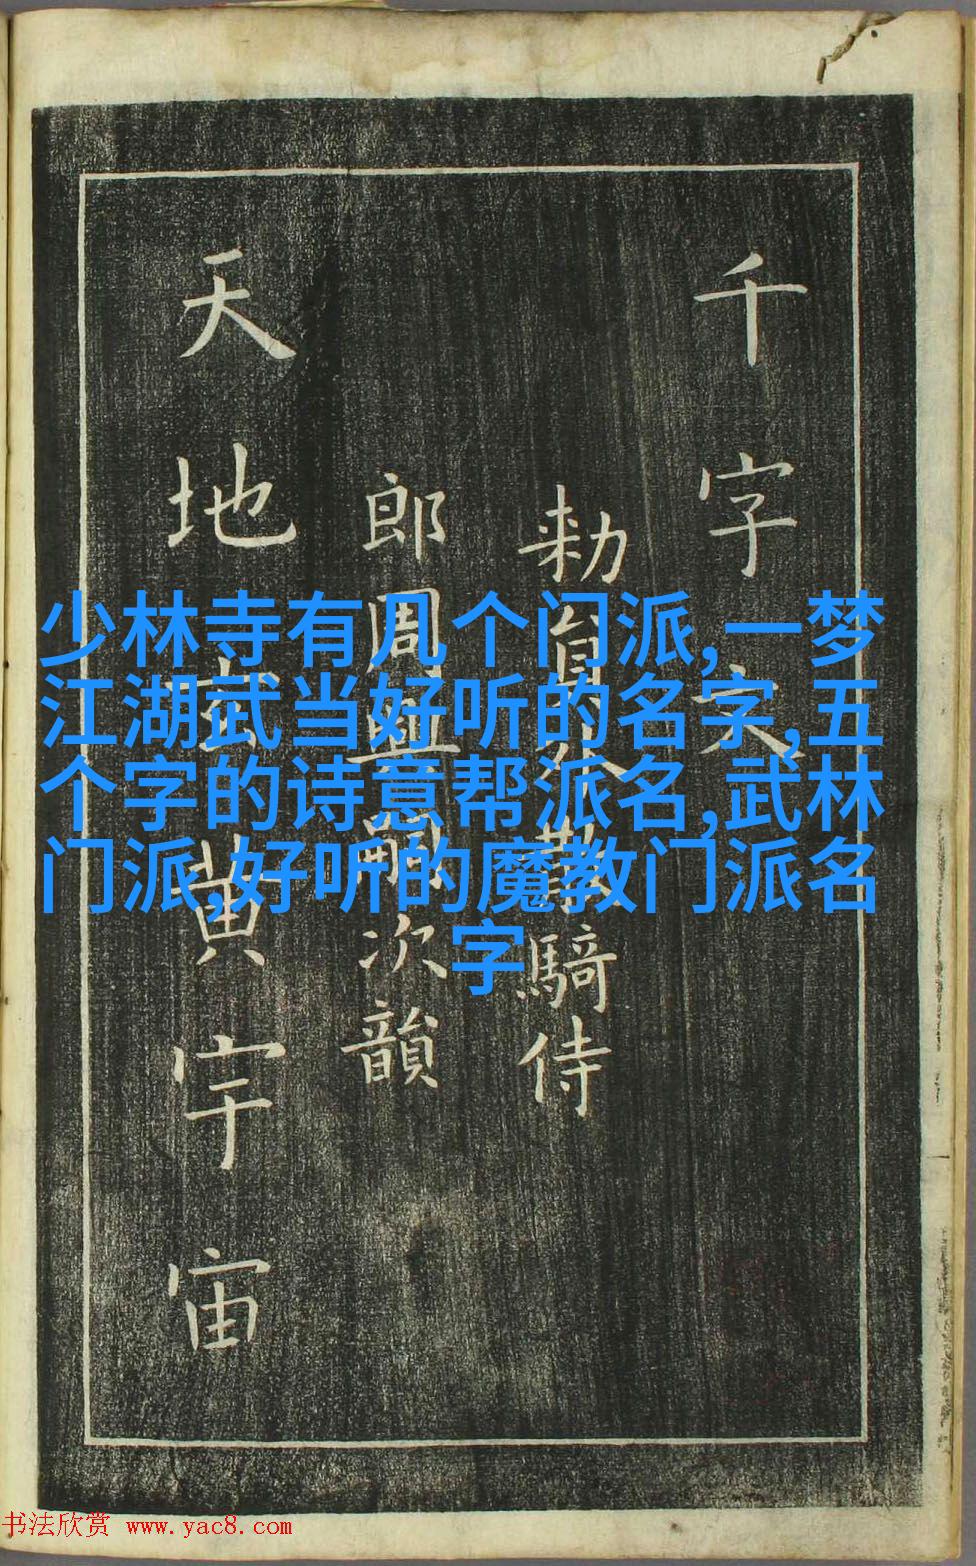 千字文
勑員外散騎侍
郎周興嗣次韻
天地玄黄宇宙
少林寺有几个门派,一梦
江湖武当好听的名字,五
个字的诗意帮派名,武林
门派,好听的魔教门派名
字
书法欣赏 www.yac8.com